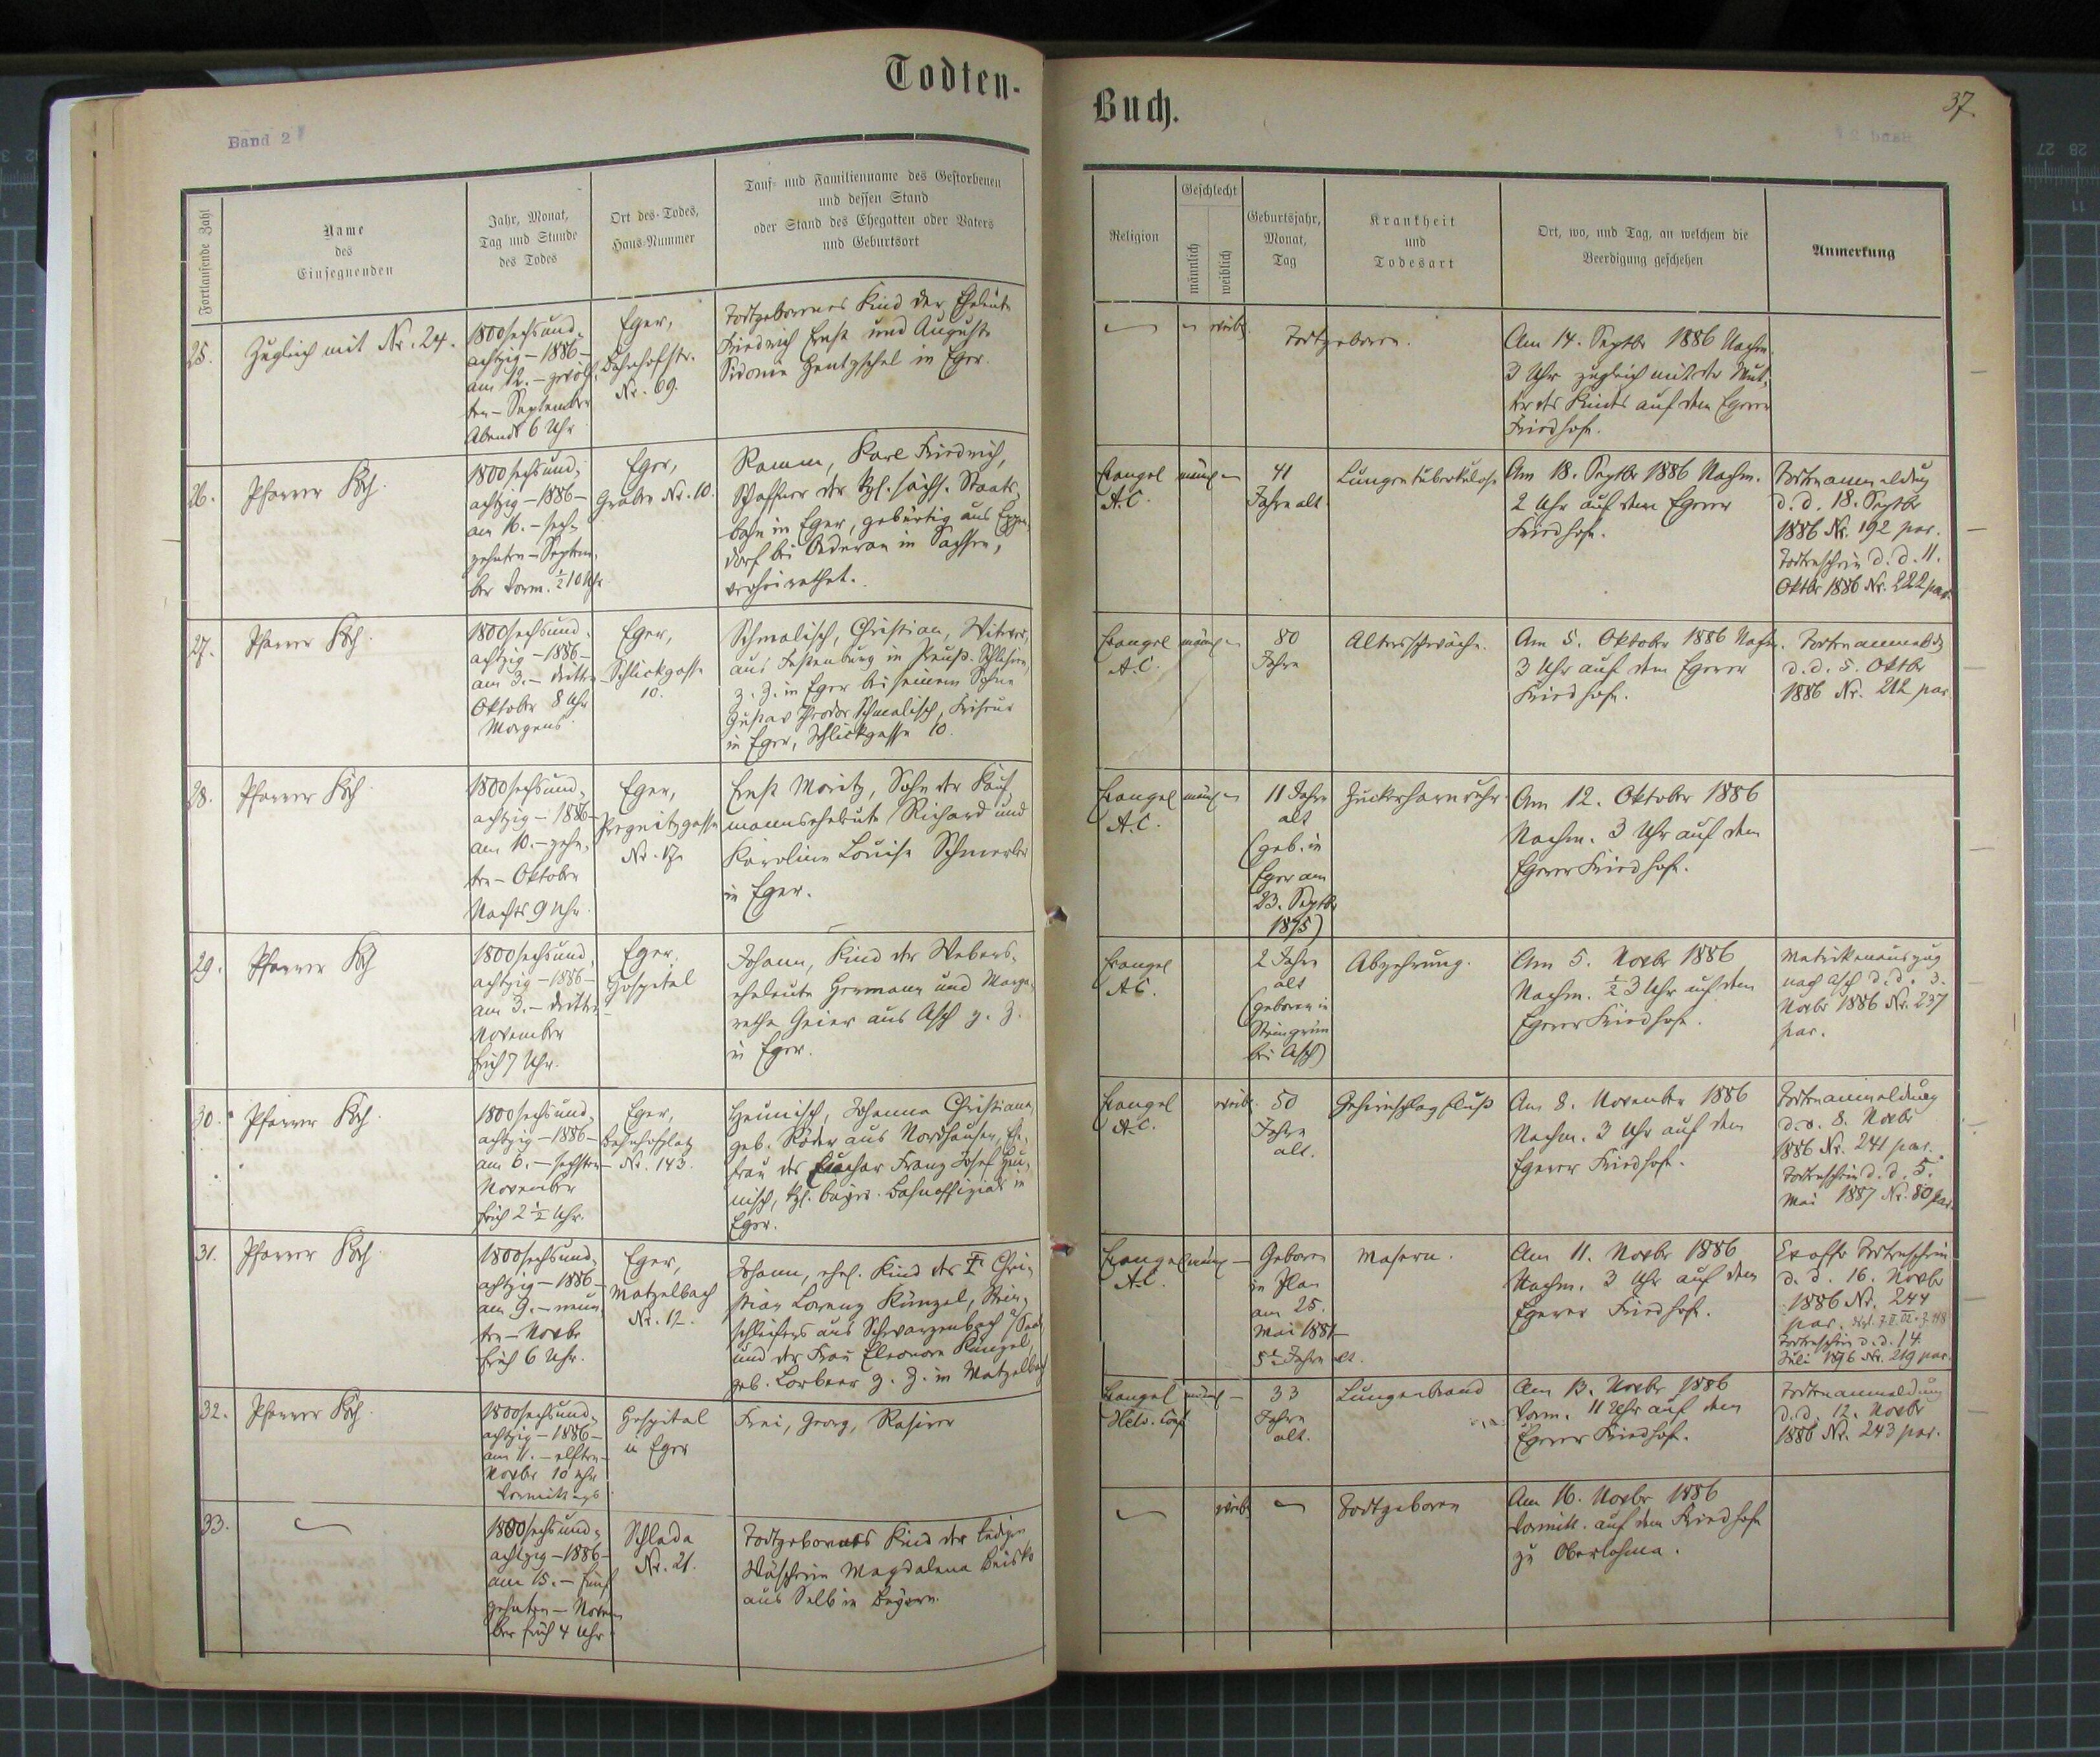 Todten-
Band 2
Fortlaufende Zahl
Name
des
Einsegnenden
Jahr, Monat,
Tag und Stunde
des Todes
Ort des Todes,
Haus-Nummer
Tauf- und Familienname des Gestorbenen
und dessen Stand
oder Stand des Ehegatten oder Vaters
und Geburtsort
25.
Zugleich mit Nr. 24.
1800 sechsund-
achtzig – 1886 –
am 12. – zwölf-
ten – September
Abends 6 Uhr
Eger,
Bahnhofstr.
Nr. 69.
Todtgeborenes Kind der Eheleute
Friedrich Ernst und Auguste
Sidonie Hentzschel in Eger.
26.
Pfarrer Koch
1800 sechsund-
achtzig – 1886 –
am 16. – sech-
zehnten – Septem-
ber Vorm. ½10 Uhr.
Eger,
Graben Nr. 10.
Ramm, Karl Friedrich,
Schaffner der kgl. sächs. Staats-
bahn in Eger, gebürtig aus Eppen-
dorf bei Oederan in Sachsen,
verheirathet.
27.
Pfarrer Koch
1800 sechsund-
achtzig – 1886 –
am 3. – dritten –
Oktober 8 Uhr
Morgens
Eger,
Schlickgasse
10.
Schmalisch, Christian, Witwer,
aus Festenburg in Preuß. Schlesien,
z. Z. in Eger bei seinem Sohne
Gustav Schmalisch, Friseur
in Eger, Schlickgasse 10.
28.
Pfarrer Koch
1800 sechsund-
achtzig – 1886 –
am 10. – zehn-
ten – Oktober
Nachts 9 Uhr
Eger,
Nr.
Ernst Moritz, Sohn der Kauf-
mannseheleute Richard und
Karoline Louise Schmerler
in Eger.
29.
Pfarrer Koch
1800 sechsund-
achtzig – 1886 –
am 3. – dritten –
November
früh 7 Uhr.
Eger,
Hospital
Johann, Kind der Webers-
eheleute Hermann und Marga-
retha Geier aus Asch z. Z.
in Eger.
30.
Pfarrer Koch
1800 sechsund-
achtzig – 1886 –
am 6. – sechsten –
November
früh 2½ Uhr.
Eger,
Bahnhofplatz
Nr. 143.
Heunisch, Johanna Christiana,
geb. Röder aus Nordhausen, Ehe-
frau des Franz Josef Heu-
nisch, kgl. bayr. Bahnoffizial in
Eger.
31.
Pfarrer Koch
1800 sechsund-
achtzig – 1886 –
am 9. – neun-
ten – Novbr
früh 6 Uhr.
Eger,
Matzelbach
Nr. 12.
Johann, ehel. Kind des Chri-
stian Lorenz Künzel, Stein-
schleifers aus Schwarzenbach a/Saale
und der Frau Eleonore Künzel,
geb. Lorbeer z. Z. in Matzelbach
32.
Pfarrer Koch
1800 sechsund-
achtzig – 1886 –
am 11. – elften –
Novbr 10 Uhr
Vormittags
Hospital
in Eger
Frei, Georg,
33.
1800 sechsund-
achtzig – 1886 –
am 15. – fünf-
zehnten – Novem-
ber früh 4 Uhr
Schlada
Nr. 21.
Todtgeborenes Kind der ledigen
Wäscherin Magdalena
aus Selb in Bayern.
Buch.
37.
Religion
Geschlecht
männlich
weiblich
Geburtsjahr,
Monat,
Tag
Krankheit
und
Todesart
Ort, wo, und Tag, an welchem die
Beerdigung geschehen
Anmerkung
weibl.
Todtgeboren.
Am 14. Septbr 1886 Nachm.
3 Uhr zugleich mit der Mut-
ter des Kindes auf dem Egerer
Friedhofe.
Evangel
A.C.
männl
41
Jahre alt
Lungentuberkulose
Am 18. Septbr 1886 Nachm.
2 Uhr auf dem Egerer
Friedhofe.
Todtenanmeldung
d. d. 18. Septbr
1886 Nr. 192 par.
Todtenschein d. d. 11.
Oktbr 1886 Nr. 222 par.
Evangel
A.C.
männl
80
Jahre
Altersschwäche.
Am 5. Oktober 1886 Nachm.
3 Uhr auf dem Egerer
Friedhofe.
Todtenanmeldg
d. d. 5. Oktbr
1886 Nr. 212 par.
Evangel
A.C.
männl
11 Jahre
alt
(geb. in
Eger am
23. Septbr
1875)
Zuckerharnruhr.
Am 12. Oktober 1886
Nachm. 3 Uhr auf dem
Egerer Friedhofe.
Evangel
A.C.
2 Jahre
alt
(geboren in
Steingrün
bei Asch)
Abzehrung.
Am 5. Novbr 1886
Nachm. ½3 Uhr auf dem
Egerer Friedhofe.
Matrikenauszug
nach Asch d. d. 3.
Novbr 1886 Nr. 237
par.
Evangel
A.C.
weibl.
50
Jahre
alt.
Gehirnschlagfluß
Am 8. November 1886
Nachm. 3 Uhr auf dem
Egerer Friedhofe.
Todtenanmeldung
d. d. 8. Novbr
1886 Nr. 241 par.
Todtenschein d. d. 5.
Mai 1887 Nr. 80 par.
Evangel
A.C.
männl
Geboren
in Plan
am 25.
Mai 1881
5½ Jahre alt.
Masern.
Am 11. Novbr 1886
Nachm. 3 Uhr auf dem
Egerer Friedhofe.
Ex offo Todtenschein
d. d. 16. Novbr
1886 Nr. 244
par.
Todtenschein d. d. 14.
Juli 1896 Nr. 219 par.
Evangel
Helv. Conf
männl
33
Jahre
alt.
Lungenbrand
Am 13. Novbr 1886
Vorm. 11 Uhr auf dem
Egerer Friedhofe.
Todtenanmeldung
d. d. 12. Novbr
1886 Nr. 243 par.
weibl
Todtgeboren
Am 16. Novbr 1886
Vormitt. auf dem Friedhofe
zu Oberlohma.